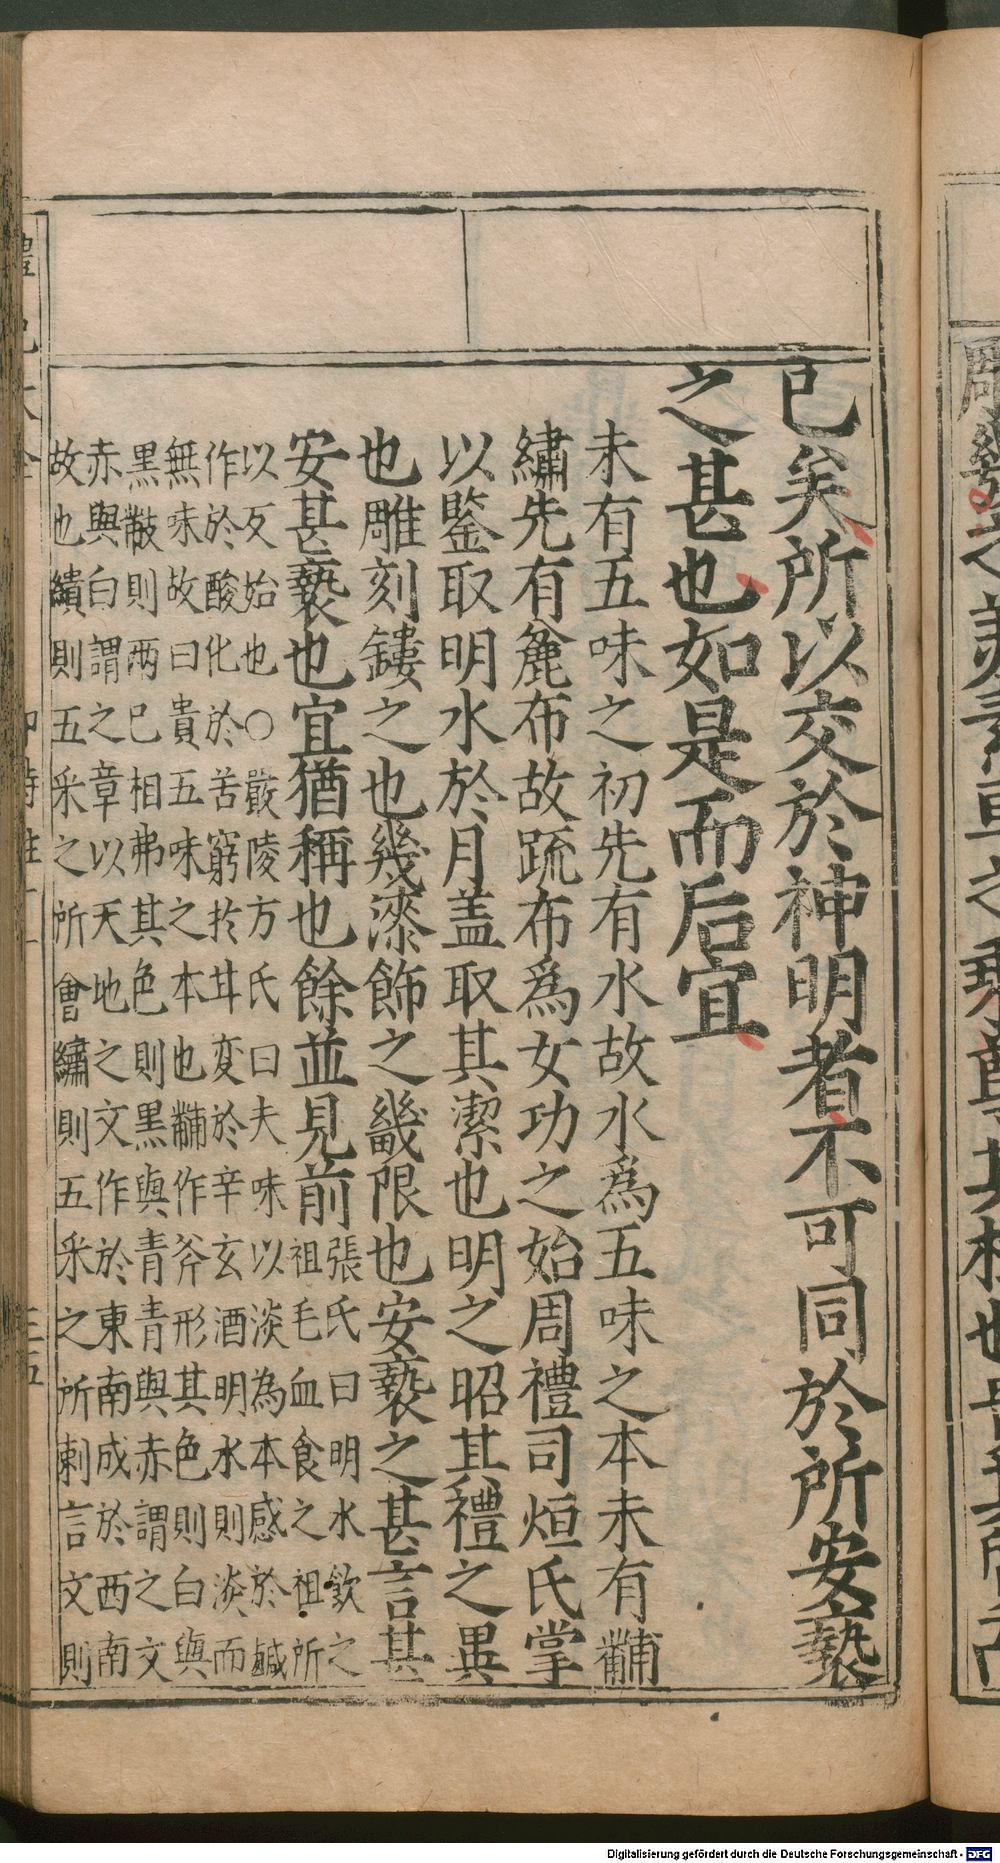 已矣所以交於神明者不可同於所安褻
之甚也如是而后宜
未有五味之初先有水故水爲五味之本未有黼
繡先有麄布故疏布爲女功之始周禮司烜氏掌
以鑒取明水於月蓋取其潔也明之昭其禮之異
也雕刻鏤之也幾漆飾之畿限也安褻之甚言其
安甚褻也宜猶稱也餘並見前
張氏曰明水歛之
祖毛血食之祖所
以反始也○嚴陵方氏曰夫味以淡為本感於鹹
作於酸化於苦窮扵甘変於辛玄酒明水則淡而
無味故曰貴五味之本也黼作斧形其色則白與
黒黻則两已相弗其色則黒與青青與赤謂之文
赤與白謂之章以天地之文作於東南成於西南
故也繢則五采之所會繡則五采之所刺言文則
三五
Digitalisierung gefördert durch die Deutsche Forschungsgemeinschaft - DFG